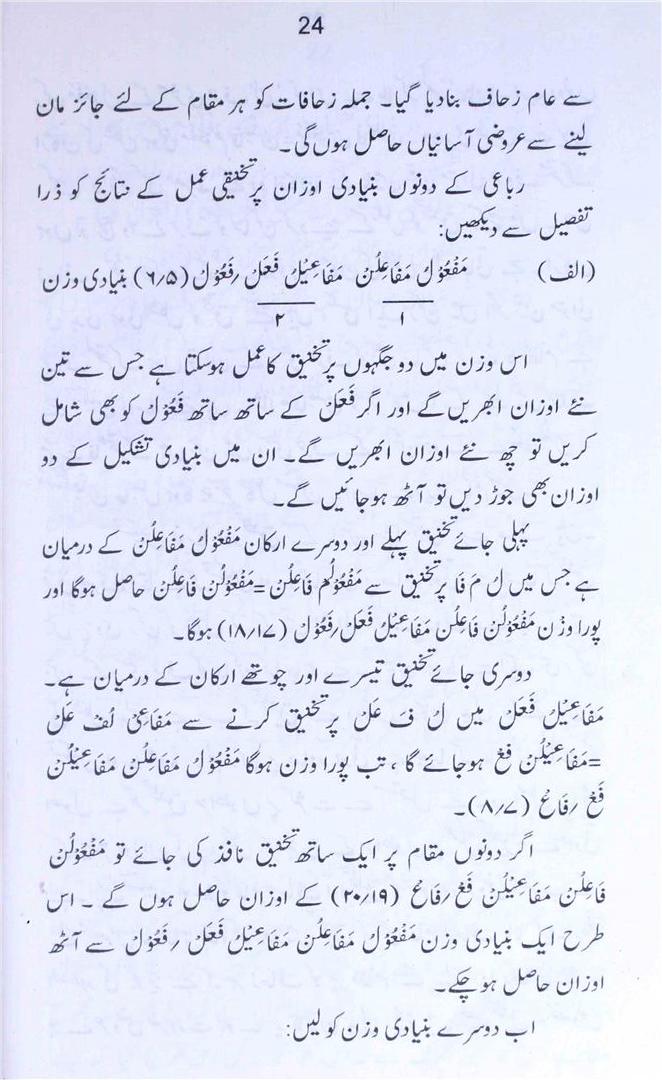 24
سے عام زحاف بنا دیا گیا۔ جملہ زحافات کو ہر مقام کے لئے جائز مان
لینے سے عروضی آسانیاں حاصل ہوں گی۔
رباعی کے دونوں بنیادی اوزان پر تخنیقی عمل کے نتائج کو ذرا
تفصیل سے دیکھیں:
(الف) مَفْعُوْلُ مَفَاعِلُنْ مَفَاعِیْلُ فَعَلْ /فَعُوْلْ (۶/۵) بنیادی وزن
۱ ۲
اس وزن میں دو جگہوں پر تخنیق کا عمل ہوسکتا ہے جس سے تین
نئے اوزان ابھریں گے اور اگر فَعَلْ کے ساتھ ساتھ فَعُوْلْ کو بھی شامل
کریں تو چھ نئے اوزان ابھریں گے۔ ان میں بنیادی تشکیل کے دو
اوزان بھی جوڑ دیں تو آٹھ ہوجائیں گے۔
پہلی جائے تخنیق پہلے اور دوسرے ارکان مَفْعُوْلُ مَفَاعِلُنْ کے درمیان
ہے جس میں لُ مَ فَا پر تخنیق سے مَفْعُوْلُمْ فَاعِلُنْ=مَفْعُوْلُنْ فَاعِلُنْ حاصل ہوگا اور
پورا وزن مَفْعُوْلُنْ فَاعِلُنْ مَفَاعِیْلُ فَعَلْ/فَعُوْلْ (۱۸/۱۷) ہوگا۔
دوسری جائے تخنیق تیسرے اور چوتھے ارکان کے درمیان ہے۔
مَفَاعِیْلُ فَعَلْ میں لُ فَ عَلْ پر تخنیق کرنے سے مَفَاعِیْ لُفْ عَلْ
=مَفَاعِیْلُنْ فَعْ ہوجائے گا، تب پورا وزن ہوگا مَفْعُوْلُ مَفَاعِلُنْ مَفَاعِیْلُنْ
فَعْ /فَاعْ (۸/۷)۔
اگر دونوں مقام پر ایک ساتھ تخنیق نافذ کی جائے تو مَفْعُوْلُنْ
فَاعِلُنْ مَفَاعِیْلُنْ فَعْ /فَاعْ (۲۰/۱۹) کے اوزان حاصل ہوں گے۔ اس
طرح ایک بنیادی وزن مَفْعُوْلُ مَفَاعِلُنْ مَفَاعِیْلُ فَعَلْ /فَعُوْلْ سے آٹھ
اوزان حاصل ہوچکے۔
اب دوسرے بنیادی وزن کو لیں: